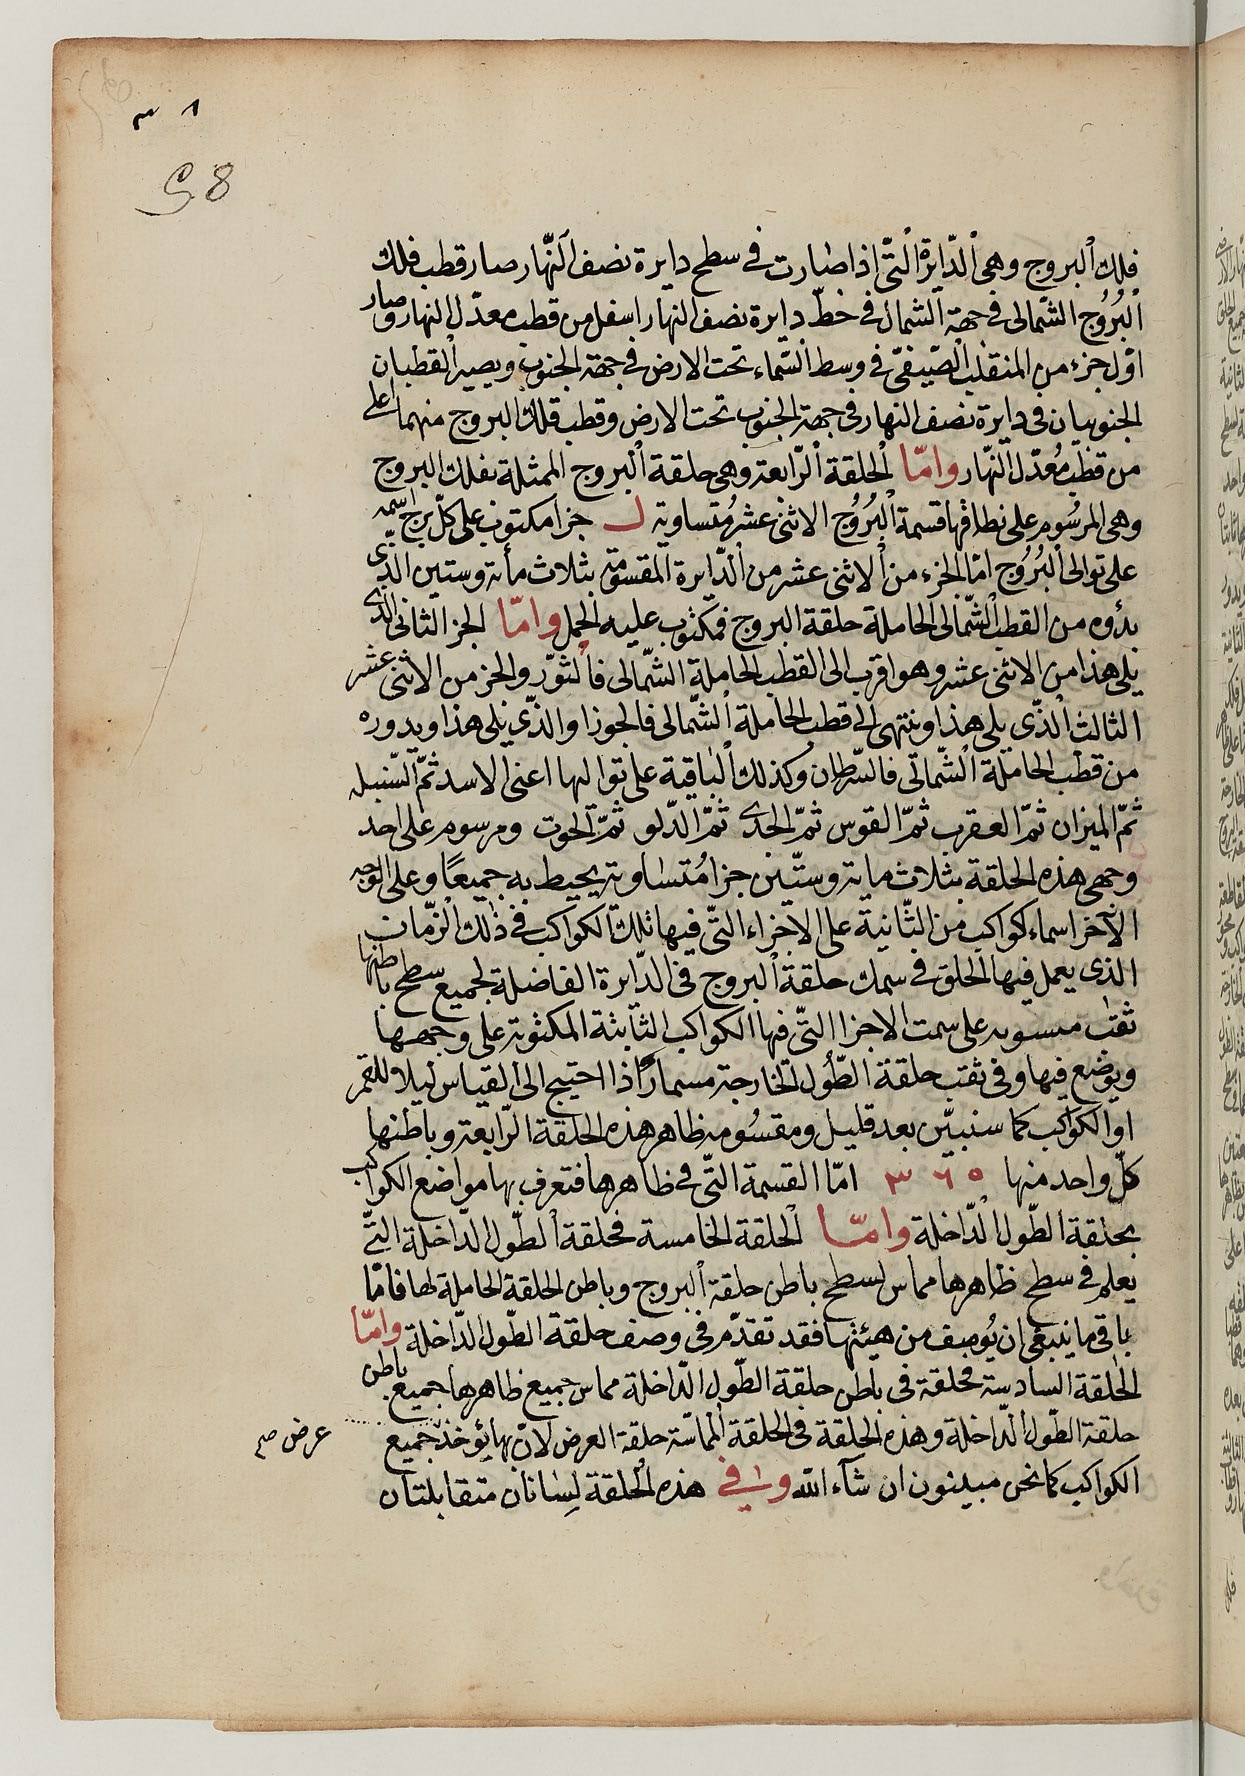 ٨ ٣
58
فلك البروج وهى الدّايرة الّتى اذا صارت فى سطح دايرة نصف النّهار صار قطب فلك
البُرُوج الشّمالى فى جهة الشمال فى خطّ دايرة نصف النهار اسفل من قطب معدّل النهار وصار
اوّل جزء من المنقلب الصّيفىّ فى وسط السّماء تحت الارض فى جهة الجنوب ويصير القطبان
الجنوبيان فى دايرة نصف النهار فى جهة الجنوب تحت الارض وقطب فلك البروج منهما اعلى
من قطب مُعدّل النّهار وامّا الحلقة الرّابعة وهى حلقة البروج الممثلة بفلك البروج
وهى المرسُوم على نطاقها قسمة البُرُوج الاثنى عشر مُتساوية ل جزا مكتوب على كلّ برج اسمه
على توالى البُرُوج امّا الجزء من الاثنى عشر من الدّايرة المقسومة بثلاث مأة وستين الذّى
بدؤه من القطب الشّمالى الحاملة حلقة البروج فمكتوب عليه الحمل وامّا الجز الثانى الذّى
يلى هذا من الاثنى عشر وهو اقرب الى القطب الحاملة الشّمالى فالثوّر والجز من الاثنى عشر
الثالث الذّى يلى هذا وينتهى الى قطب الحاملة الشّمالى فالجوزا والذّى يلى هذا وبدوره
من قطب الحاملة الشّمالى فالسّرطان وكذلك الباقية على تواليها اعنى الاسد ثمّ السّنبله
ثمّ الميزان ثمّ العقرب ثمّ القوس ثمّ الجدى ثمّ الدّلو ثمّ الحوت ومرسوم على احد
وجهى هذه الحلقة بثلاث ماية وستّين جزا مُتساوية يحيط به جميعًا وعلى الوجه
الآخر اسماء كواكب من الثّانية على الاجزاء التّى فيها تلك الكواكب فى ذلك الزّمان
الذى يعمل فيها الحلق فى سمك حلقة البروج فى الدّايرة الفاضلة لجميع سطح باطنها
ثقب مستويه على سمت الاجزا التّى فيها الكواكب الثّابتة المكتوبة على وجهها
ويوضع فيها وفى ثقب حلقة الطّول الخارجة مسمار اذا احتيج الى القياس ليلا للقمر
او الكواكب كما سنبيّن بعد قليل ومقسُومه ظاهر هذه الحلقة الرّابعة وباطنها
كلّ واحد منها ٣٦٥ امّا القسمة التّى فى ظاهرها فتعرف بها مواضع الكواكب
بحلقة الطّول الدّاخلة وامّا الحلقة الخامسة فحلقة الطّول الدّاخلة التّى
يعلم فى سطح ظاهرها مماس لسطح باطن حلقة البروج وباطن الحلقة الحاملة لها فامّا
باقى ما ينبغى ان يُوصف من هيئتها فقد تقدّم فى وصف حلقة الطّول الدّاخلة وامّا
الحلقة السادسة فحلقة فى باطن حلقة الطّول الدّاخلة مماس جميع ظاهرها جميع باطن
حلقة الطّول الدّاخلة وهذه الحلقة فى الحلقة المماسّة حلقة العرض لانّ بها يؤخذ جميع
عرض صح
الكواكب كما نحن مبينون ان شآء الله وفى هذه الحلقة لِسَانان متقابلتان